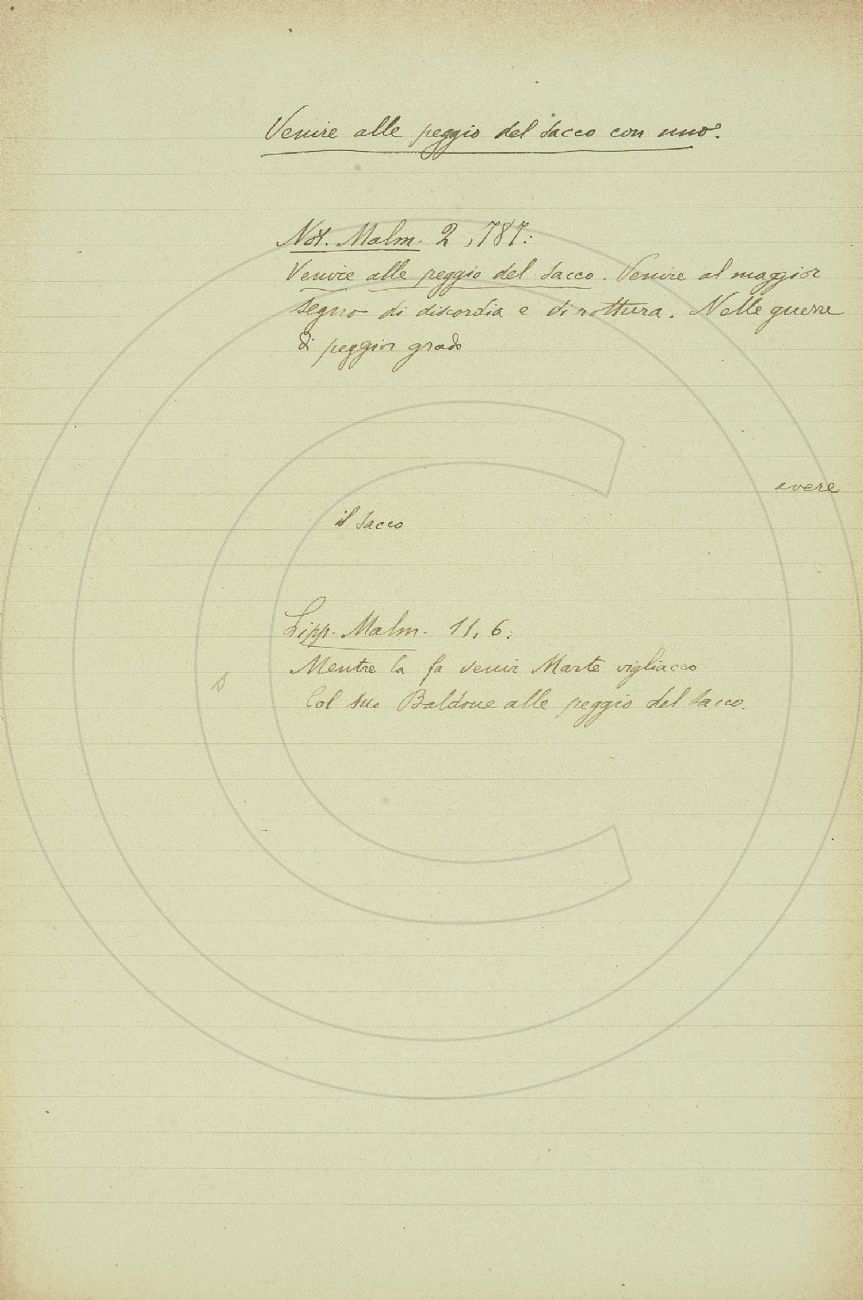 Venire alle peggio del sacco con uno.
Not. Malm. 2, 787:
Venire alle peggio del sacco. Venire al maggior
segno di discordia e di rottura. Nelle guerre
il peggior grado
avere
il sacco
Lipp. Malm. 11, 6:
Mentre la fa venir Marte vigliacco
Col suo Baldone alle peggio del sacco.